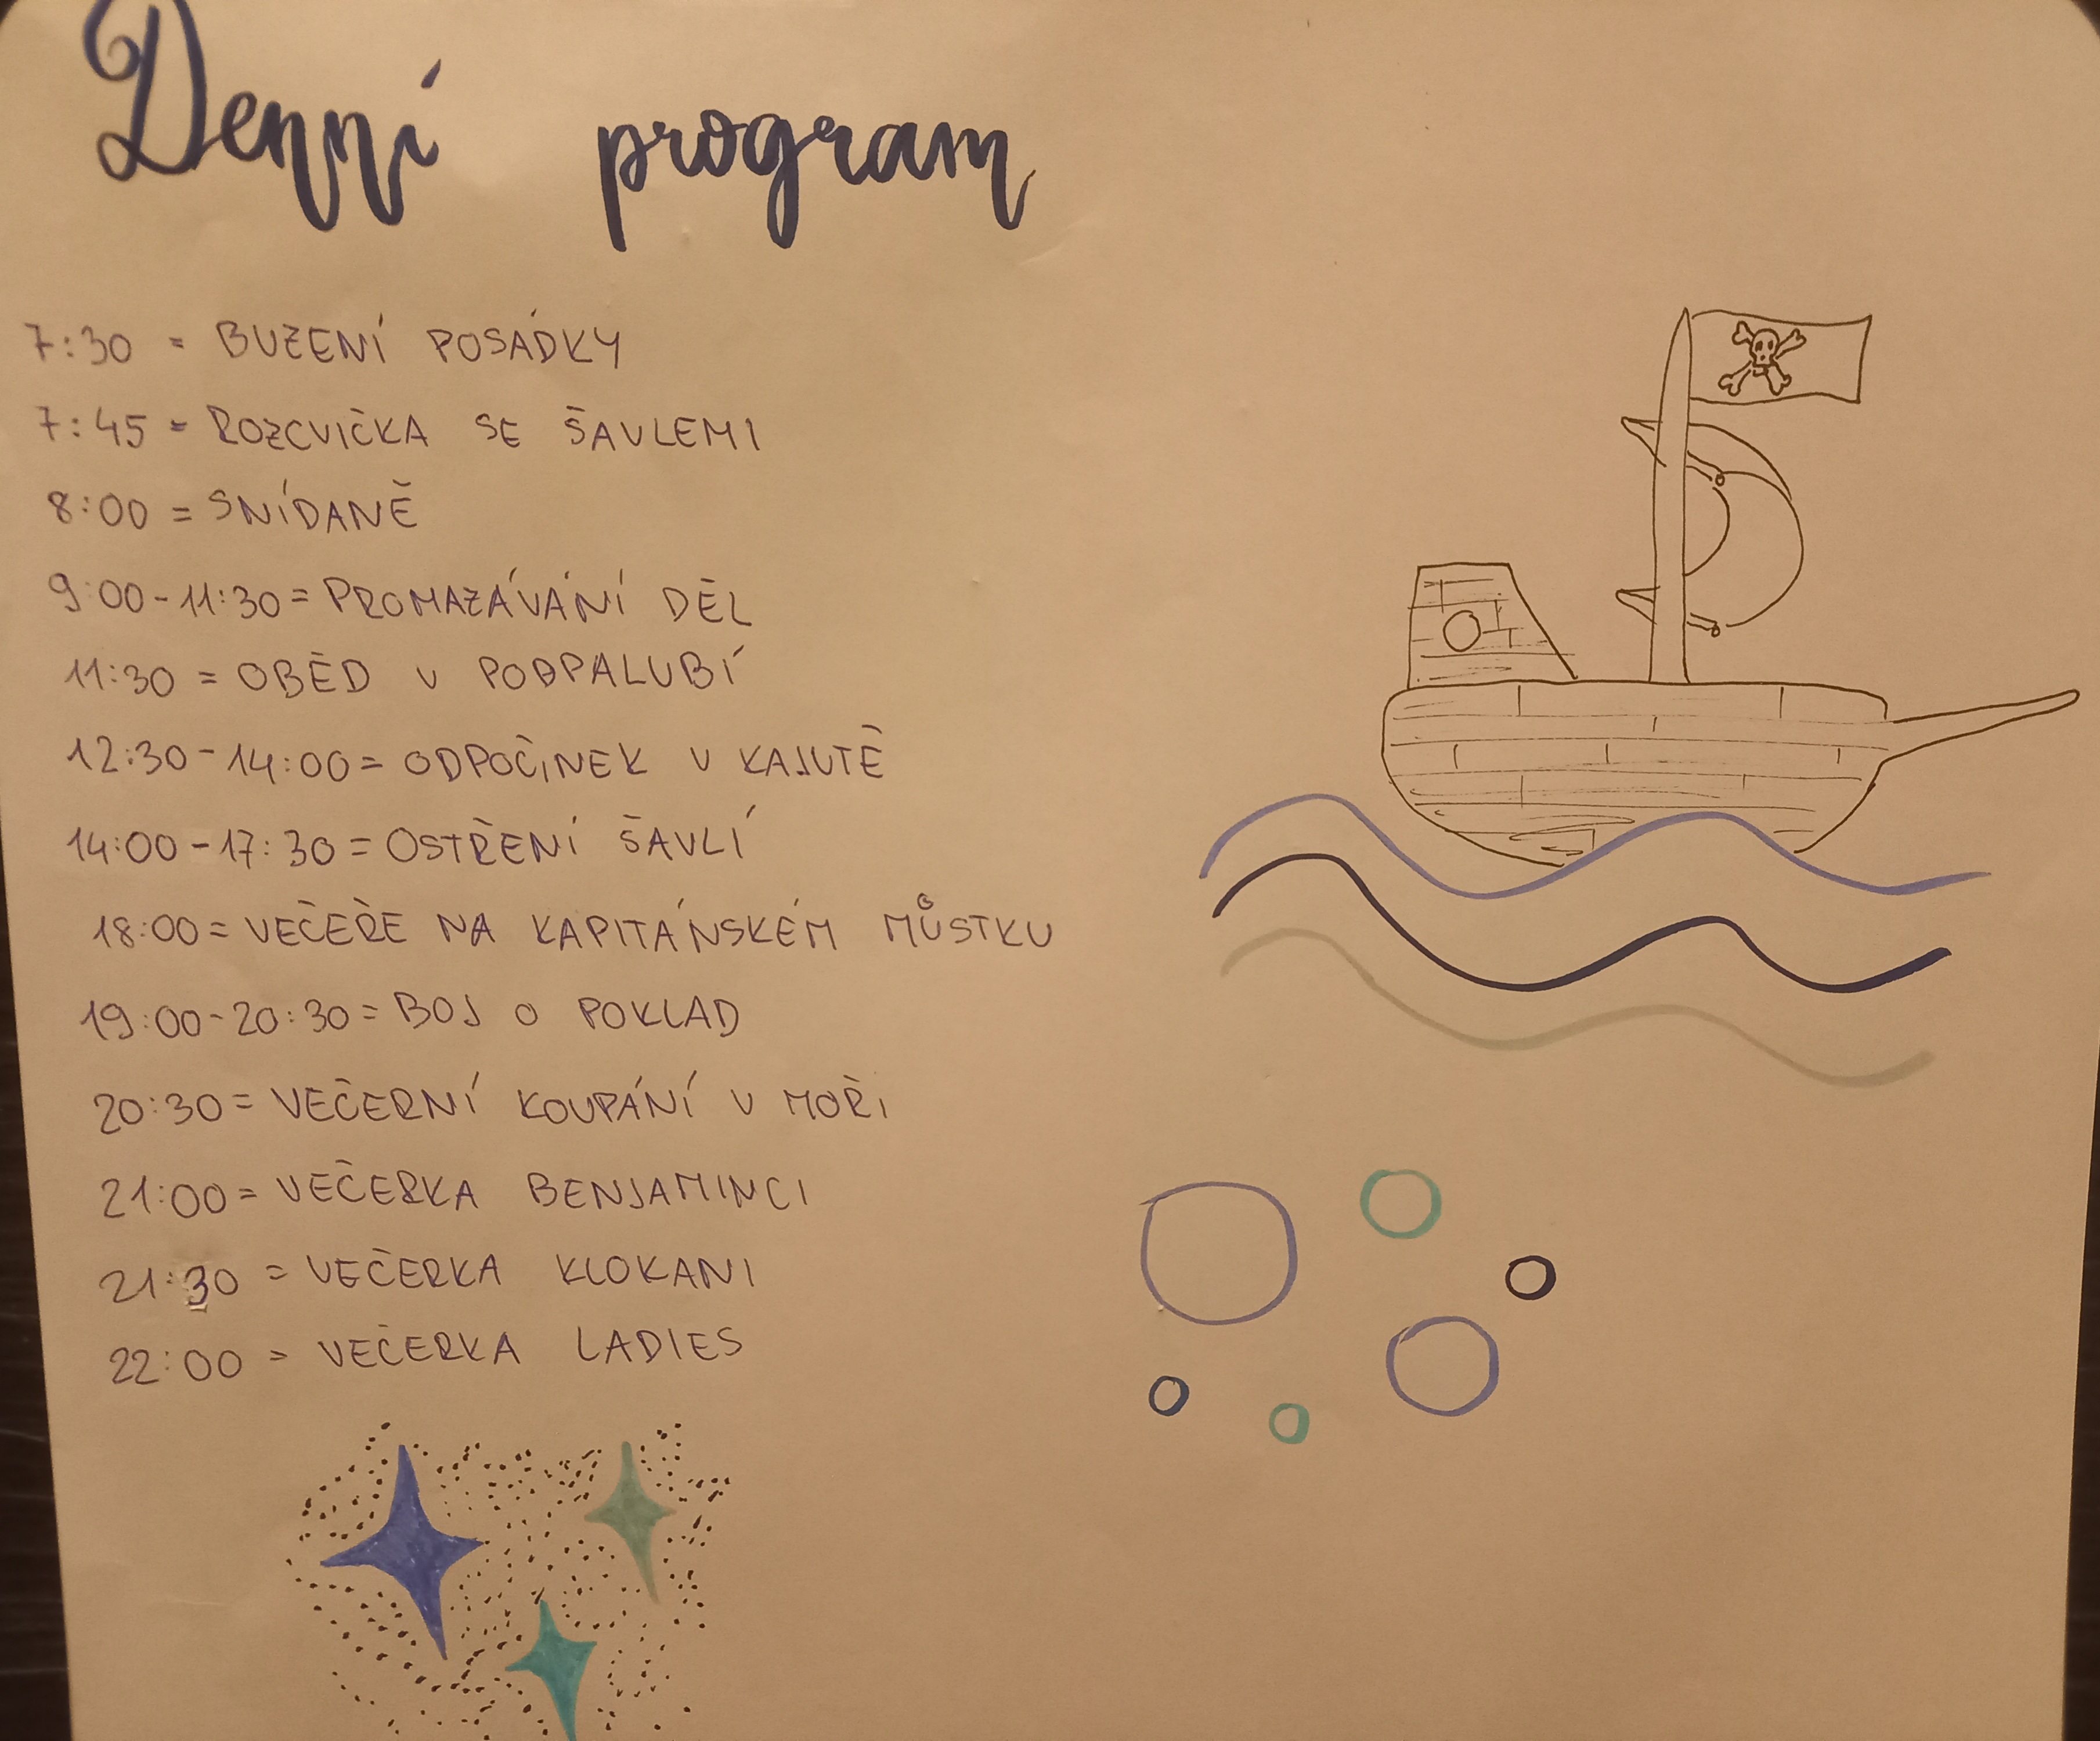 Denní program
7:30 = BUZENÍ POSÁDKY
7:45 = ROZCVIČKA SE ŠAVLEMI
8:00 = SNÍDANĚ
9:00-11:30 = PROMAZÁVÁNÍ DĚL
11:30 = OBĚD V PODPALUBÍ
12:30-14:00 = ODPOČINEK V KAJUTĚ
14:00-17:30 = OSTŘENÍ ŠAVLÍ
18:00 = VEČEŘE NA KAPITÁNSKÉM MŮSTKU
19:00-20:30 = BOJ O POKLAD
20:30 = VEČERNÍ KOUPÁNÍ V MOŘI
21:00 = VEČERKA BENJAMINCI
21:30 = VEČERKA KLOKANI
22:00 = VEČERKA LADIES